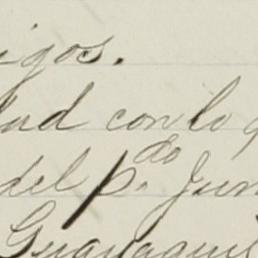 igos.
dad con lo q
del p.do Jun
Guayaquil